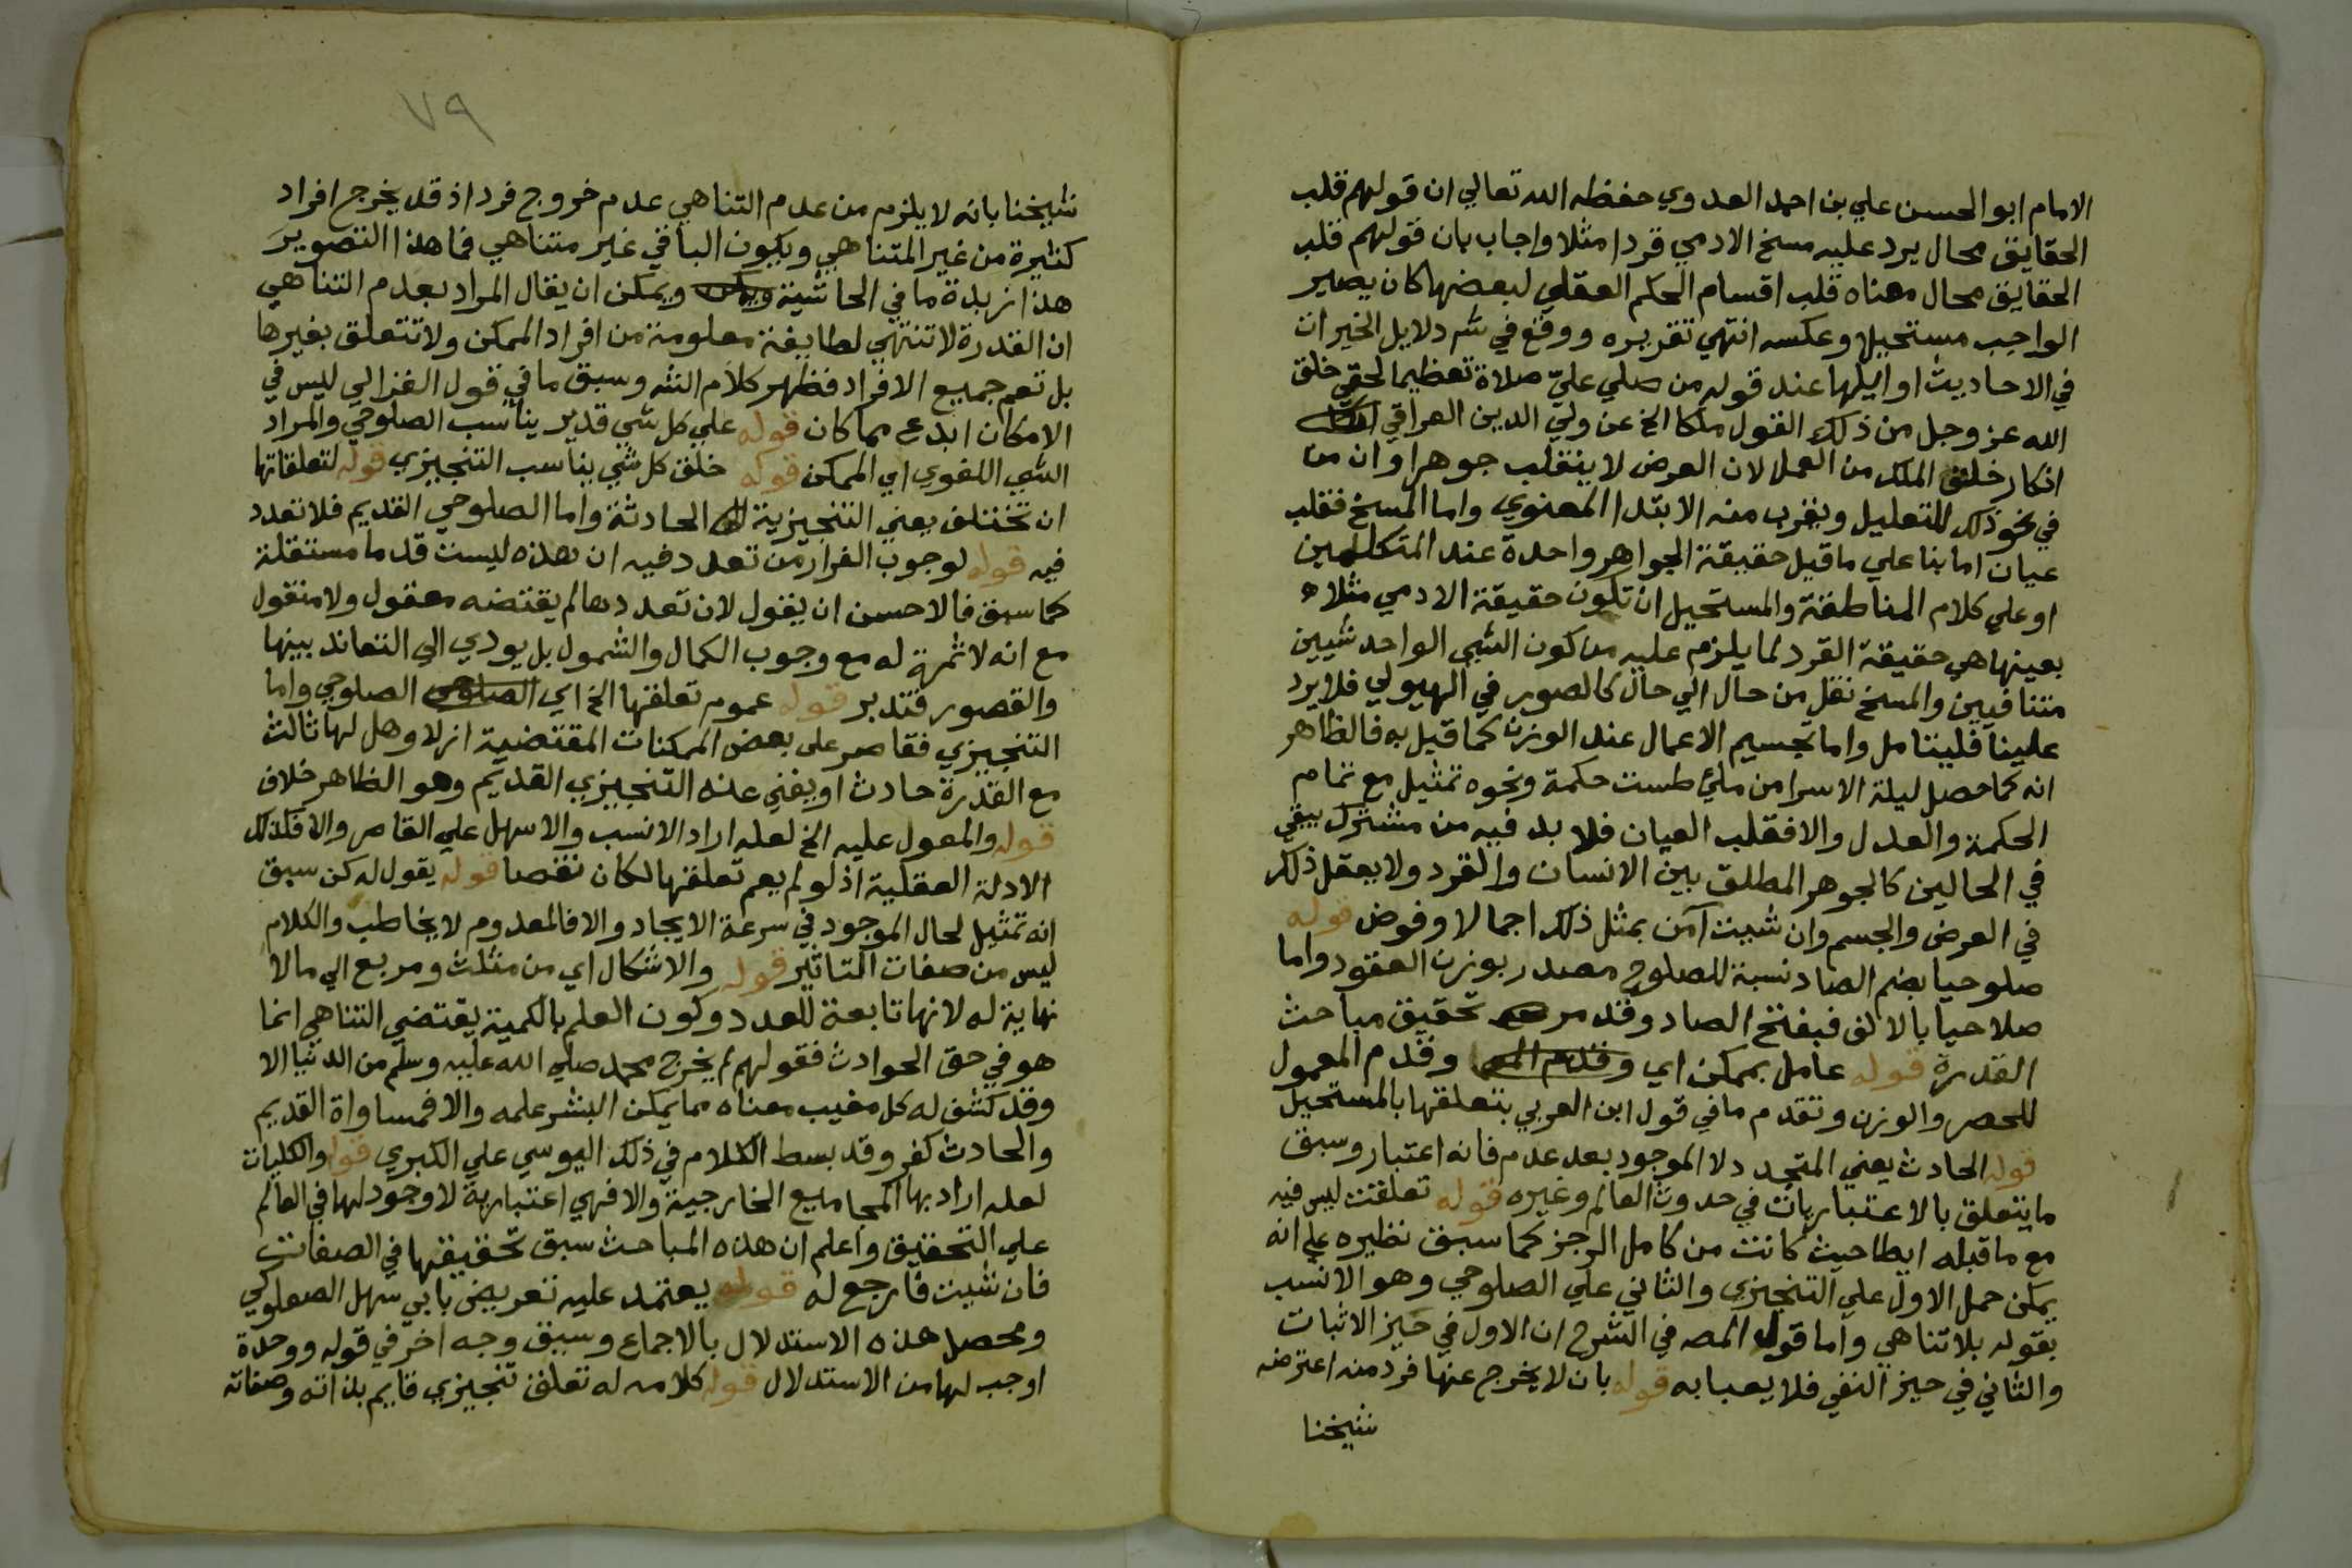 الامام ابو الحسن علي بن احمد العدوي حفظه الله تعالي ان قولهم قلب
الحقايق محال يرد عليه مسخ الادمي قردا مثلا واجاب بان قولهم قلب
الحقايق محال معناه قلب اقسام الحكم العقلي لبعضها كان يصير
الواجب مستحيلا وعكسه انتهي تقريره ووقع في شر دلايل الخيرات
في الاحاديث اوايلها عند قوله من صلي علي صلاة تعظيما لحقي خلق
الله عز وجل من ذلك القول ملكا الخ عن ولي الدين العراقي
انكار خلق الملك من العمل لان العرض لا ينقلب جوهرا وان من
في نحو ذلك للتعليل ويقرب منه الابتدا المعنوي واما المسخ فقلب
عيان اما بنا علي ما قيل حقيقة الجواهر واحدة عند المتكلمين
او علي كلام المناطقة والمستحيل ان تكون حقيقة الادمي مثلا
بعينها هي حقيقة القرد لما يلزم عليه من كون الشي الواحد شيين
متنافيين والمسخ نقل من حال الي حال كالصور في الهيولي فلا يرد
علينا فليتامل واما تجسيم الاعمال عند الوزن كما قيل به فالظاهر
انه كما حصل ليلة الاسرا من ملئ طست حكمة ونحوه تمثيل مع تمام
الحكمة والعدل والا فقلب العيان فلا بد فيه من مشترك يبقي
في الحالين كالجوهر المطلق بين الانسان والقرد ولا يعقل ذلك
في العرض والجسم وان شيت آمن بمثل ذلك اجمالا وفوض قوله
صلوحيا بضم الصاد نسبة للصلوح مصدر بوزن العقود واما
صلاحيا بالالف فبفتح الصاد وقد مر تحقيق مباحث
القدرة قوله عامل بممكن اي وقدم المعمول
للحصر والوزن وتقدم ما في قول ابن العربي بتعلقها بالمستحيل
قوله الحادث يعني المتجدد لا الموجود بعد عدم فانه اعتبار وسبق
ما يتعلق بالاعتباريات في حدوث العالم وغيره قوله تعلقت ليس فيه
مع ما قبله ايطا حيث كانت من كامل الرجز كما سبق نظيره علي انه
يمكن حمل الاول علي التنجيزي والثاني علي الصلوحي وهو الانسب
بقوله بلا تناهي واما قول المصه في الشرح ان الاول في حيز الاثبات
والثاني في حيز النفي فلا يعبا به قوله بان لا يخرج عنها فرد منه اعترضه
شيخنا
٧٩
شيخنا بانه لا يلزم من عدم التناهي عدم خروج فرد اذ قد يخرج افراد
كثيرة من غير المتناهي ويكون الباقي غير متناهي فما هذا التصوير
هذا زبدة ما في الحاشية ويمكن ان يقال المراد بعدم التناهي
ان القدرة لا تنتهي لطايفة معلومة من افراد الممكن ولا تتعلق بغيرها
بل تعم جميع الافراد فظهر كلام الشه وسبق ما في قول الغزالي ليس في
الامكان ابدع مما كان قوله علي كل شي قدير يناسب الصلوحي والمراد
الشي اللغوي اي الممكن قوله خلق كل شي يناسب التنجيزي قوله لتعلقاتها
ان تختلف يعني التنجيزية الحادثة واما الصلوحي القديم فلا تعدد
فيه قوله لوجوب الفرار من تعدد فيه ان هذه ليست قدما مستقلة
كما سبق فالاحسن ان يقول لان تعددها لم يقتضه معقول ولا منقول
مع انه لا ثمرة له مع وجوب الكمال والشمول بل يودي الي التعاند بينها
والقصور فتدبر قوله عموم تعلقها الخ اي الصلوحي واما
التنجيزي فقاصر علي بعض الممكنات المقتضية ازلا وهل لها ثالث
مع القدرة حادث او يغني عنه التنجيزي القديم وهو الظاهر خلاف
قوله والمعول عليه الخ لعله اراد الانسب والاسهل علي القاصر والا فكذلك
الادلة العقلية اذ لو لم يعم تعلقها لكان نقصا قوله يقول له كن سبق
انه تمثيل لحال الموجود في سرعة الايجاد والا فالمعدوم لا يخاطب والكلام
ليس من صفات التاثير قوله والاشكال اي من مثلث ومربع الي مالا
نهاية له لانها تابعة للعدد وكون العلم بالكمية يقتضي التناهي انما
هو في حق الحوادث فقولهم لم يخرج محمد صلي الله عليه وسلم من الدنيا الا
وقد كشف له كل مغيب معناه مما يمكن البشر علمه والا فمساواة القديم
والحادث كفر وقد بسط الكلام في ذلك اليوسي علي الكبري قوله والكليات
لعله اراد بها المجاميع الخارجية والا فهي اعتبارية لا وجود لها في العالم
علي التحقيق واعلم ان هذه المباحث سبق تحقيقها في الصفات
فان شيت فارجع له قوله يعتمد عليه تعريض بابي سهل الصعلوكي
ومحصل هذه الاستدلال بالاجماع وسبق وجه اخر في قوله ووحدة
اوجب لها من الاستدلال قوله كلامه له تعلق تنجيزي قايم بذاته وصفاته